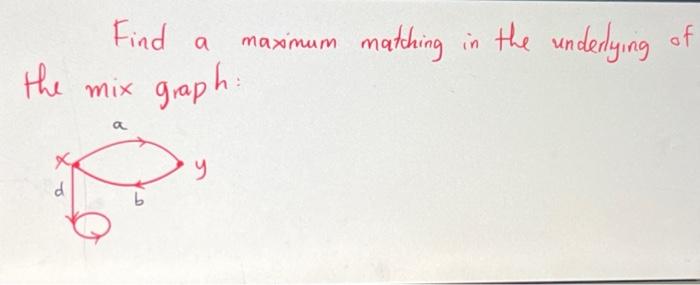 Find a maximum matching in the underlying of
the mix graph:
a
x
y
d
b